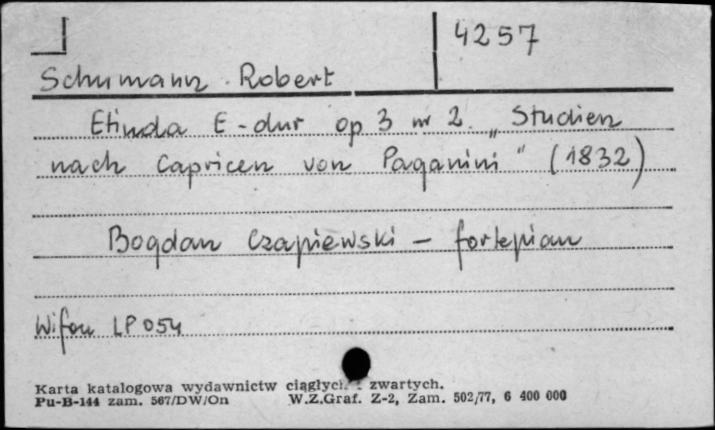 4257
Schumann Robert
Etiuda E-dur op 3 nr 2 „Studien
nach Capricen von Paganini" (1832)
Bogdan Czapiewski — fortepian
Wifon LP 054
Karta katalogowa wydawnictw ciągłych i zwartych.
Pu-B-144 zam. 567/DW/On W.Z.Graf. Z-2, Zam. 502/77, 6 400 000